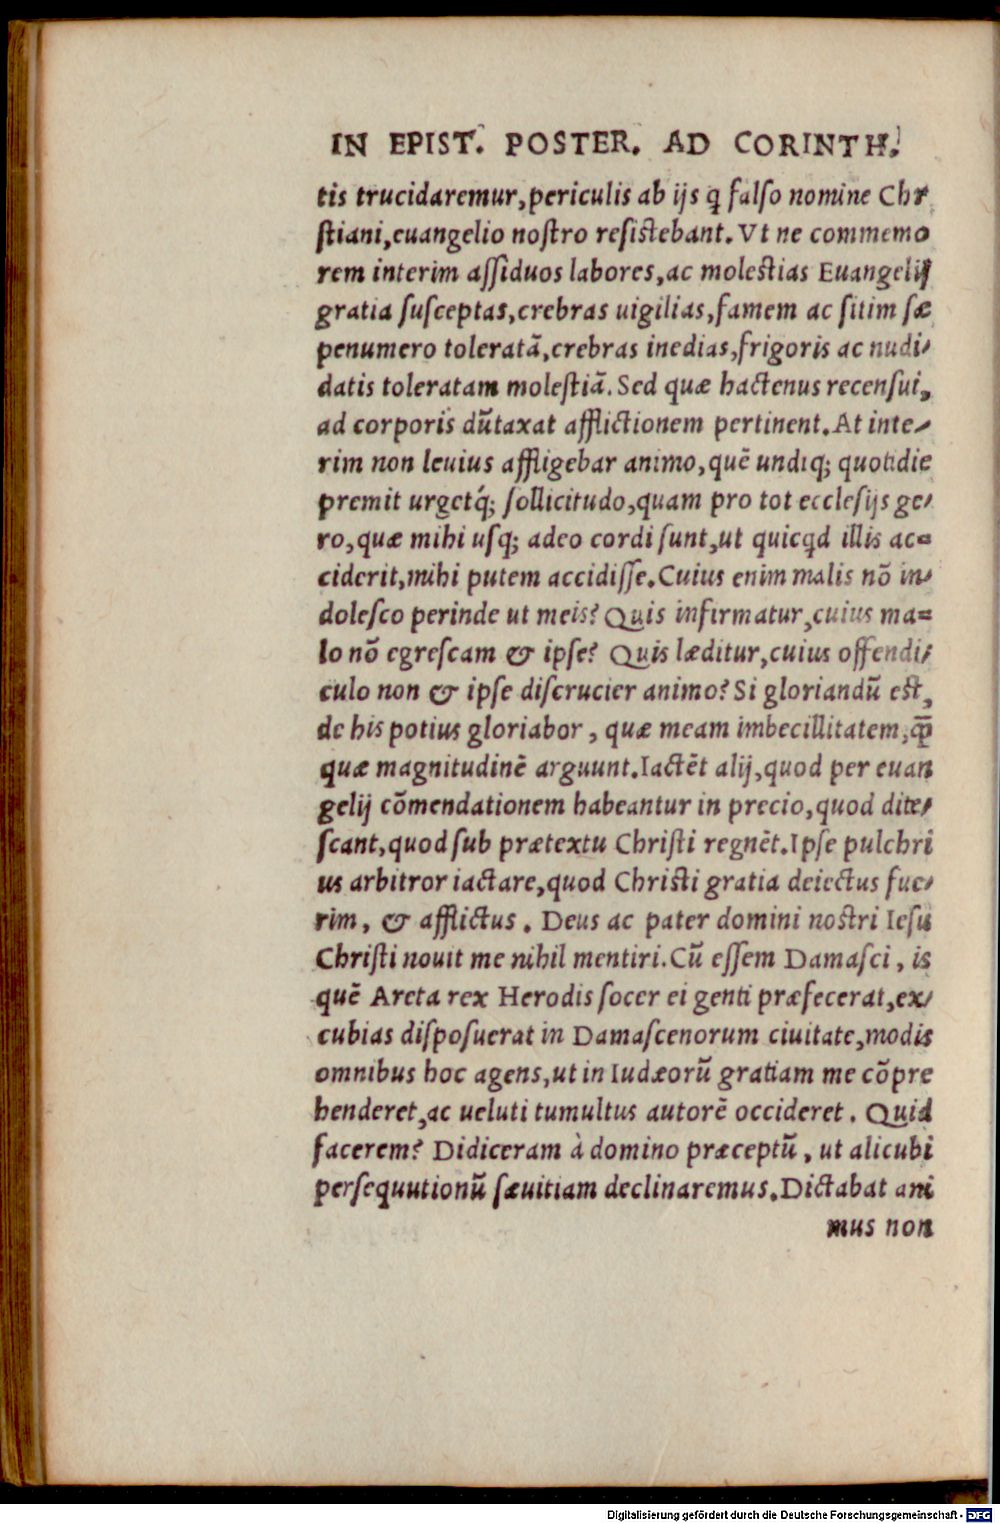 IN EPIST. POSTER. AD CORINTH.
tis trucidaremur, periculis ab ijs q̃ falso nomine Chr
stiani, euangelio nostro resistebant. Vt ne commemo
rem interim assiduos labores, ac molestias Euangelij
gratia susceptas, crebras uigilias, famem ac sitim sæ
penumero toleratã, crebras inedias, frigoris ac nudi-
datis toleratam molestiã. Sed quæ hactenus recensui,
ad corporis dũtaxat afflictionem pertinent. At inte-
rim non leuius affligebar animo, quẽ undiq; quotidie
premit urgetq́; sollicitudo, quam pro tot ecclesijs ge-
ro, quæ mihi usq; adeo cordi sunt, ut quicqd illis ac=
ciderit, mihi putem accidisse. Cuius enim malis nõ in-
dolesco perinde ut meis? Quis infirmatur, cuius ma=
lo nõ egrescam & ipse? Quis læditur, cuius offendi-
culo non & ipse discrucier animo? Si gloriandũ est,
de his potius gloriabor, quæ meam imbecillitatem, q̃
quæ magnitudinẽ arguunt. Iactẽt alij, quod per euan
gelij cõmendationem habeantur in precio, quod dite-
scant, quod sub prætextu Christi regnẽt. Ipse pulchri
us arbitror iactare, quod Christi gratia deiectus fue-
rim, & afflictus. Deus ac pater domini nostri Iesu
Christi nouit me nihil mentiri. Cũ essem Damasci, is
quẽ Areta rex Herodis socer ei genti præfecerat, ex-
cubias disposuerat in Damascenorum ciuitate, modis
omnibus hoc agens, ut in Iudæorũ gratiam me cõpre
henderet, ac ueluti tumultus autorẽ occideret. Quid
facerem? Didiceram à domino præceptũ, ut alicubi
persequutionũ sæuitiam declinaremus. Dictabat ani
mus non
Digitalisierung gefördert durch die Deutsche Forschungsgemeinschaft - DFG